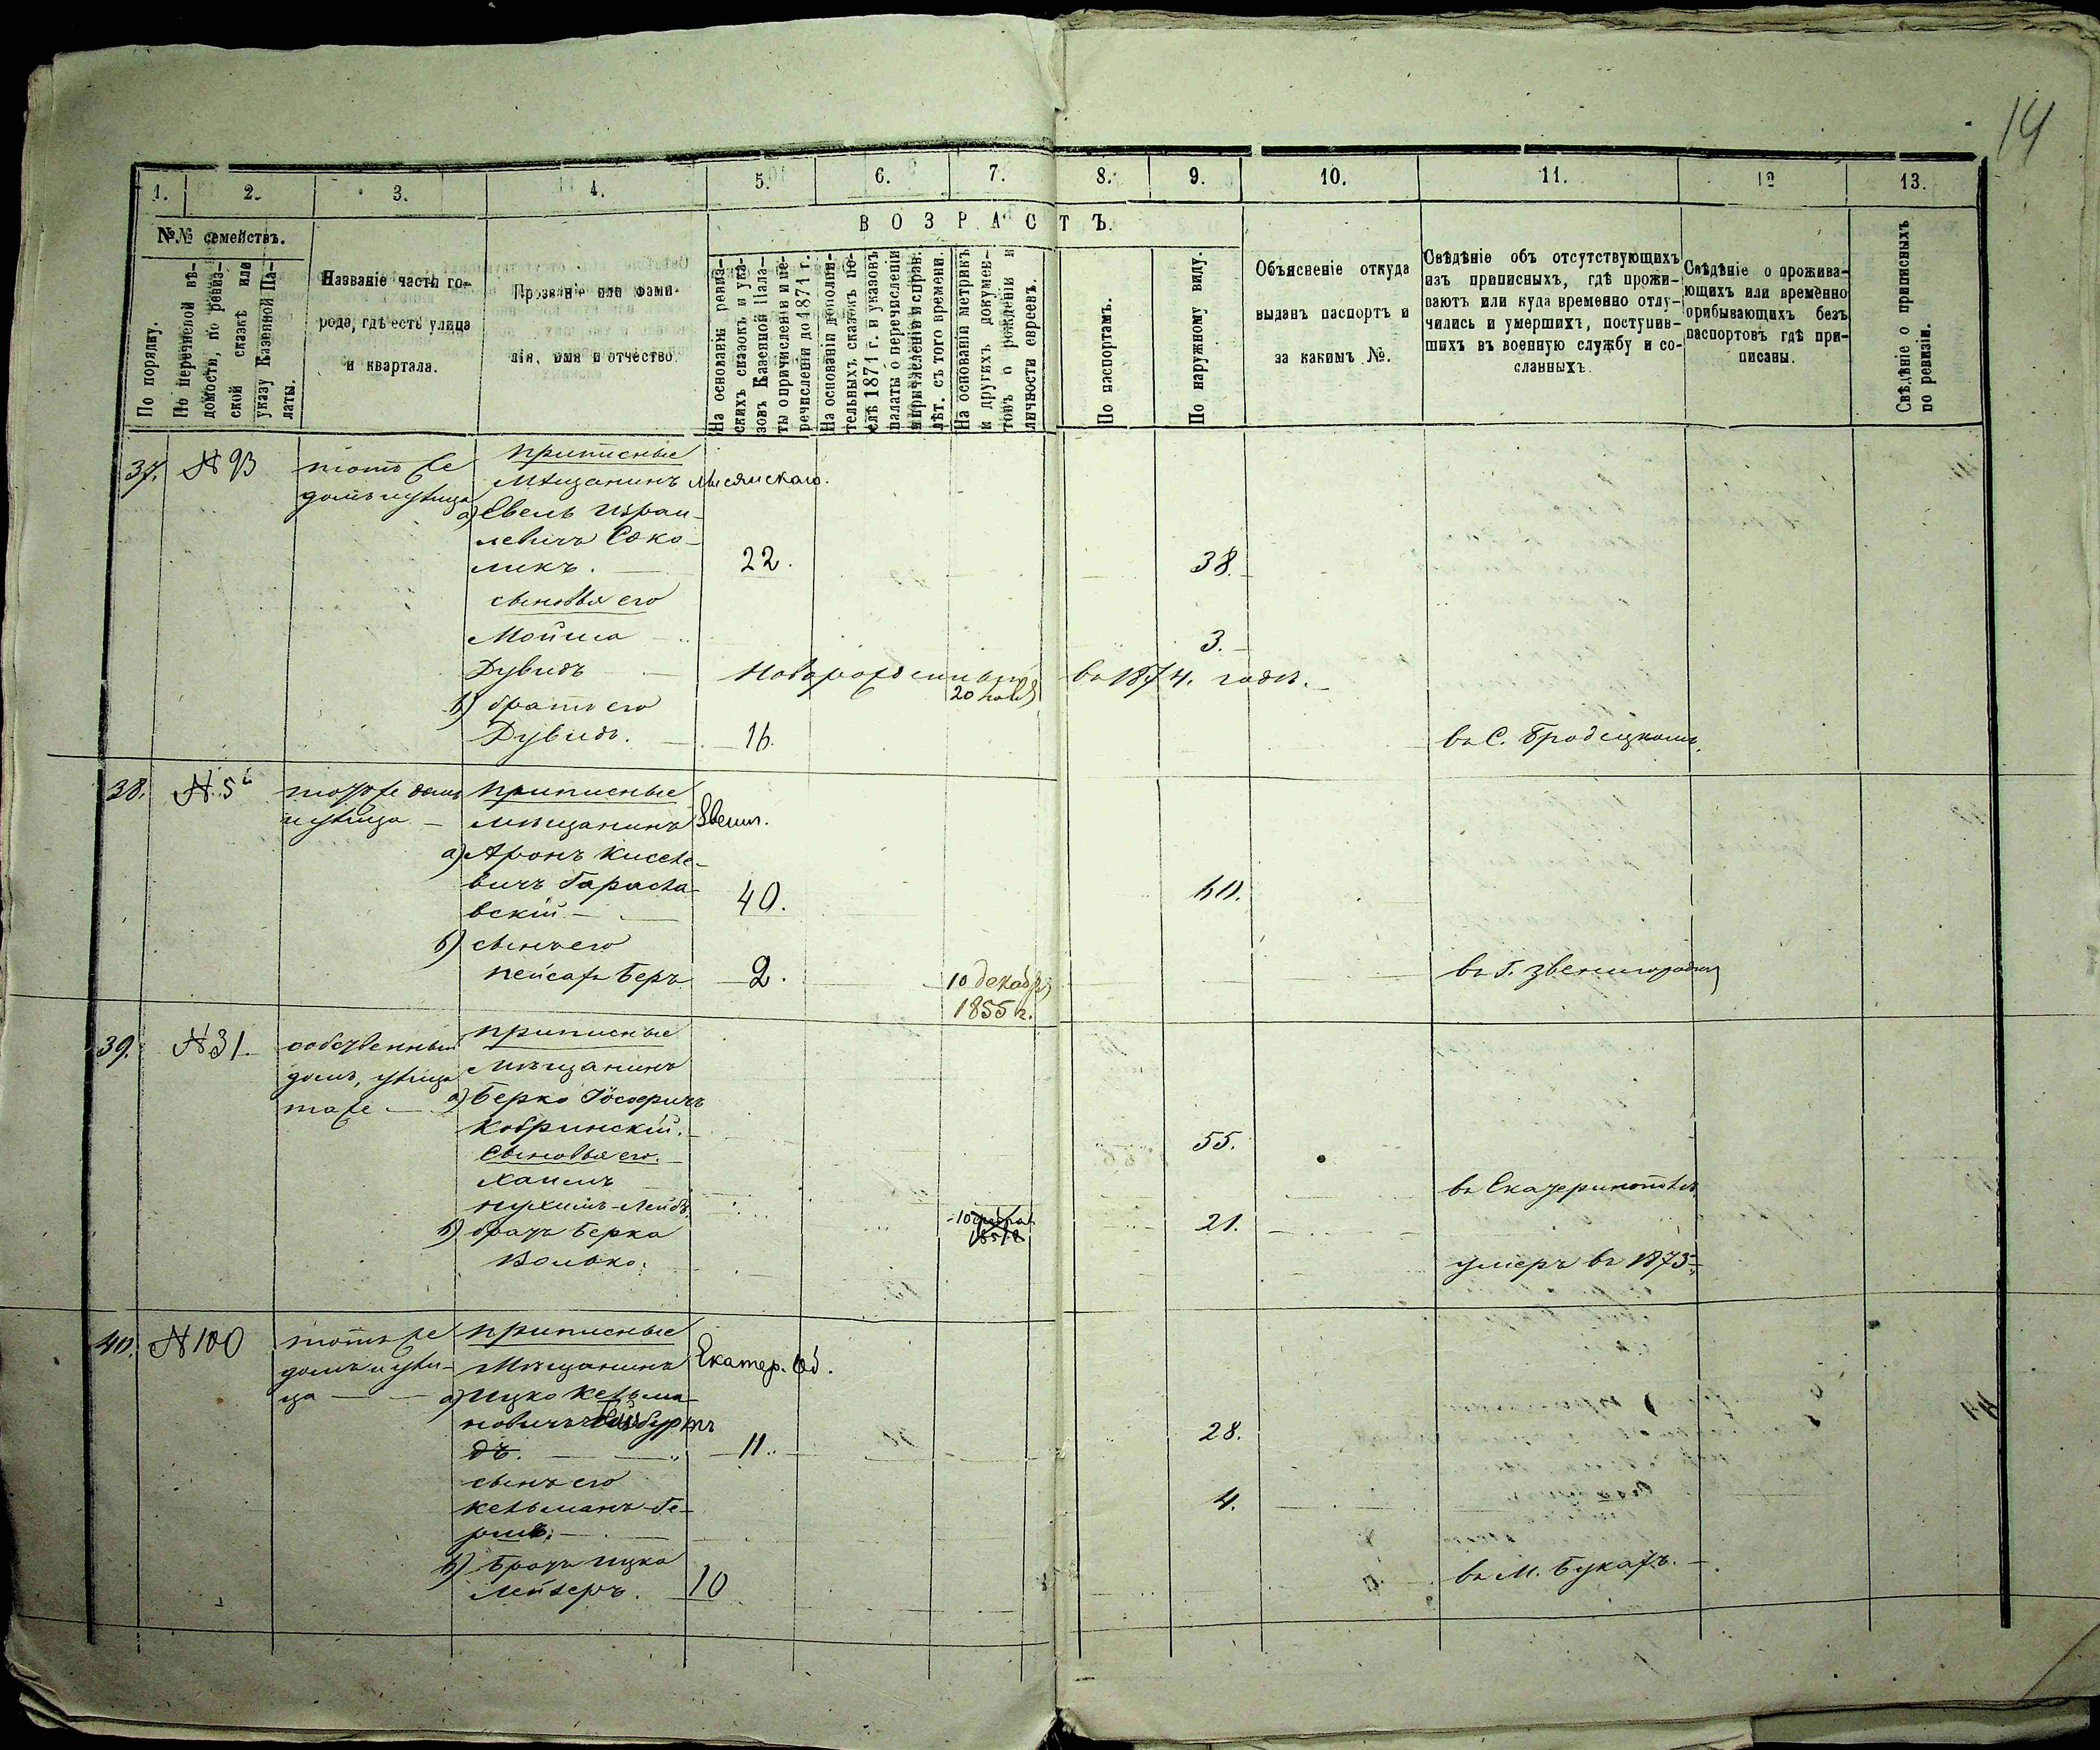 14
1. 2. 3. 4. 5. 6. 7. 8. 9. 10. 11. 12 13.
№.№ семействъ.
По порядку.
По перечневой вѣ-
домости, по ревиз-
ской сказкѣ или
указу Казенной Па-
латы.
Названіе части го-
рода, гдѣ есть улица
и квартала.
Прозваніе или фами-
лія, имя и отчество.
ВОЗРАСТЪ.
На основаніи ревиз-
скихъ сказокъ и ука-
зовъ Казенной Пала-
ты о причисленіи и пе-
речисленіи до 1871 г.
На основаніи дополни-
тельныхъ сказокъ по-
слѣ 1871 г. и указовъ
палаты о перечисленіи
и причисленіи и справ.
лѣт. съ того времени.
На основаніи метрикъ
и другихъ докумен-
товъ о рожденіи и
личности евреевъ.
По паспортамъ.
По наружному виду.
Объясненіе откуда
выданъ паспортъ и
за какимъ №.
Свѣдѣніе объ отсутствующихъ
изъ приписныхъ, гдѣ прожи-
ваютъ или куда временно отлу-
чились и умершихъ, поступив-
шихъ въ военную службу и со-
сланныхъ.
Свѣдѣніе о прожива-
ющихъ или временно
прибывающихъ безъ
паспортовъ гдѣ при-
писаны.
Свѣдѣніе о приписныхъ
по ревизіи.
37. N 93 тотъ же приписные
домъ и улица Мѣщанинъ Лысянскаго.
а) Евель Израи-
левичъ Соко-
ликъ. 22. 38.
сыновья его
Мойша 3.
Дувидъ Новорожденный въ 1874. годѣ.
20 нояб
б) братъ его
Дувидъ. 16. въ С. Бродецкомъ.
38. N. 5й тотъ же домъ приписные
и улица Мѣщанинъ Звени.
а) Аронъ Киселе-
вичъ Гарасла-
вскій 40. 60.
б) сынъ его
Пейсахъ Беръ 2. 10 декаб въ г. Звенигородкѣ
1855 г.
39. N 31. собственный приписные
домъ, улица Мѣщанинъ
таже а) Берко Іосфичъ
Кобринскій. 55.
Сыновья его.
Хаимъ въ Екатеринополѣ
Нухимъ-Лейбъ 21.
б) братъ Берка
Волько. умеръ въ 1873
40. N 100 тотъ же приписные
домъ и ули- Мѣщанинъ Екатер. Об.
ца а) Ицко Кельма-
новичъ
дъ. 11. 28.
сынъ его
Кельманъ-Ге-
ршъ. 4.
б) Братъ Ицка
Мейлеръ. 10 въ М. Букахъ.